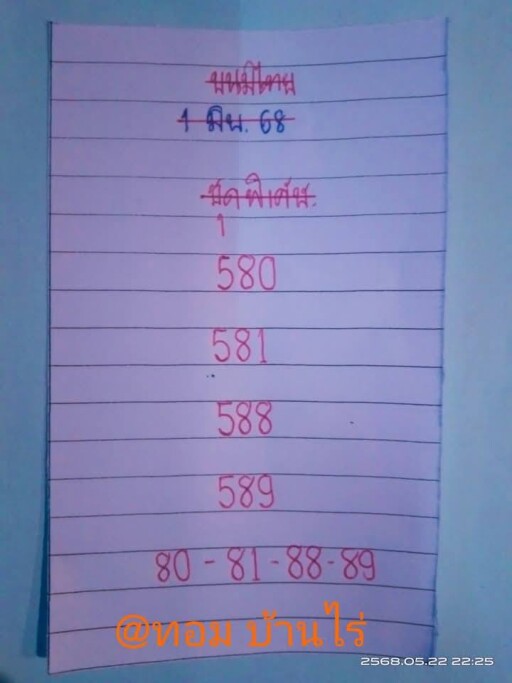 ขุนมีไทย
1 มิย. 68
ชุดพิเศษ
580
581
588
589
80 - 81 - 88 - 89
@ทอม บ้านไร่
2568.05.22 22:25